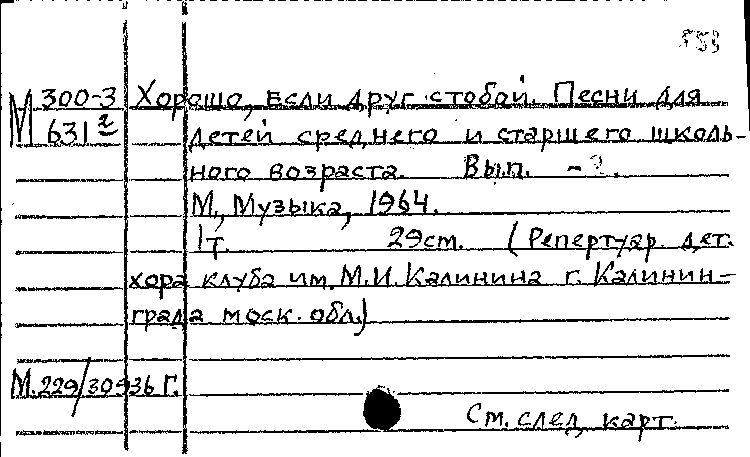 М 300-3 Хорошо, если друг с тобой. Песни для
631 2 детей среднего и старшего школь-
ного возраста. Вып. -
М., Музыка, 1964.
1т. 29см. (Репертуар дет.
хора клуба им. М.И. Калинина г. Калинин-
града моск. обл.)
М.229/30936 г.
См. след. карт.